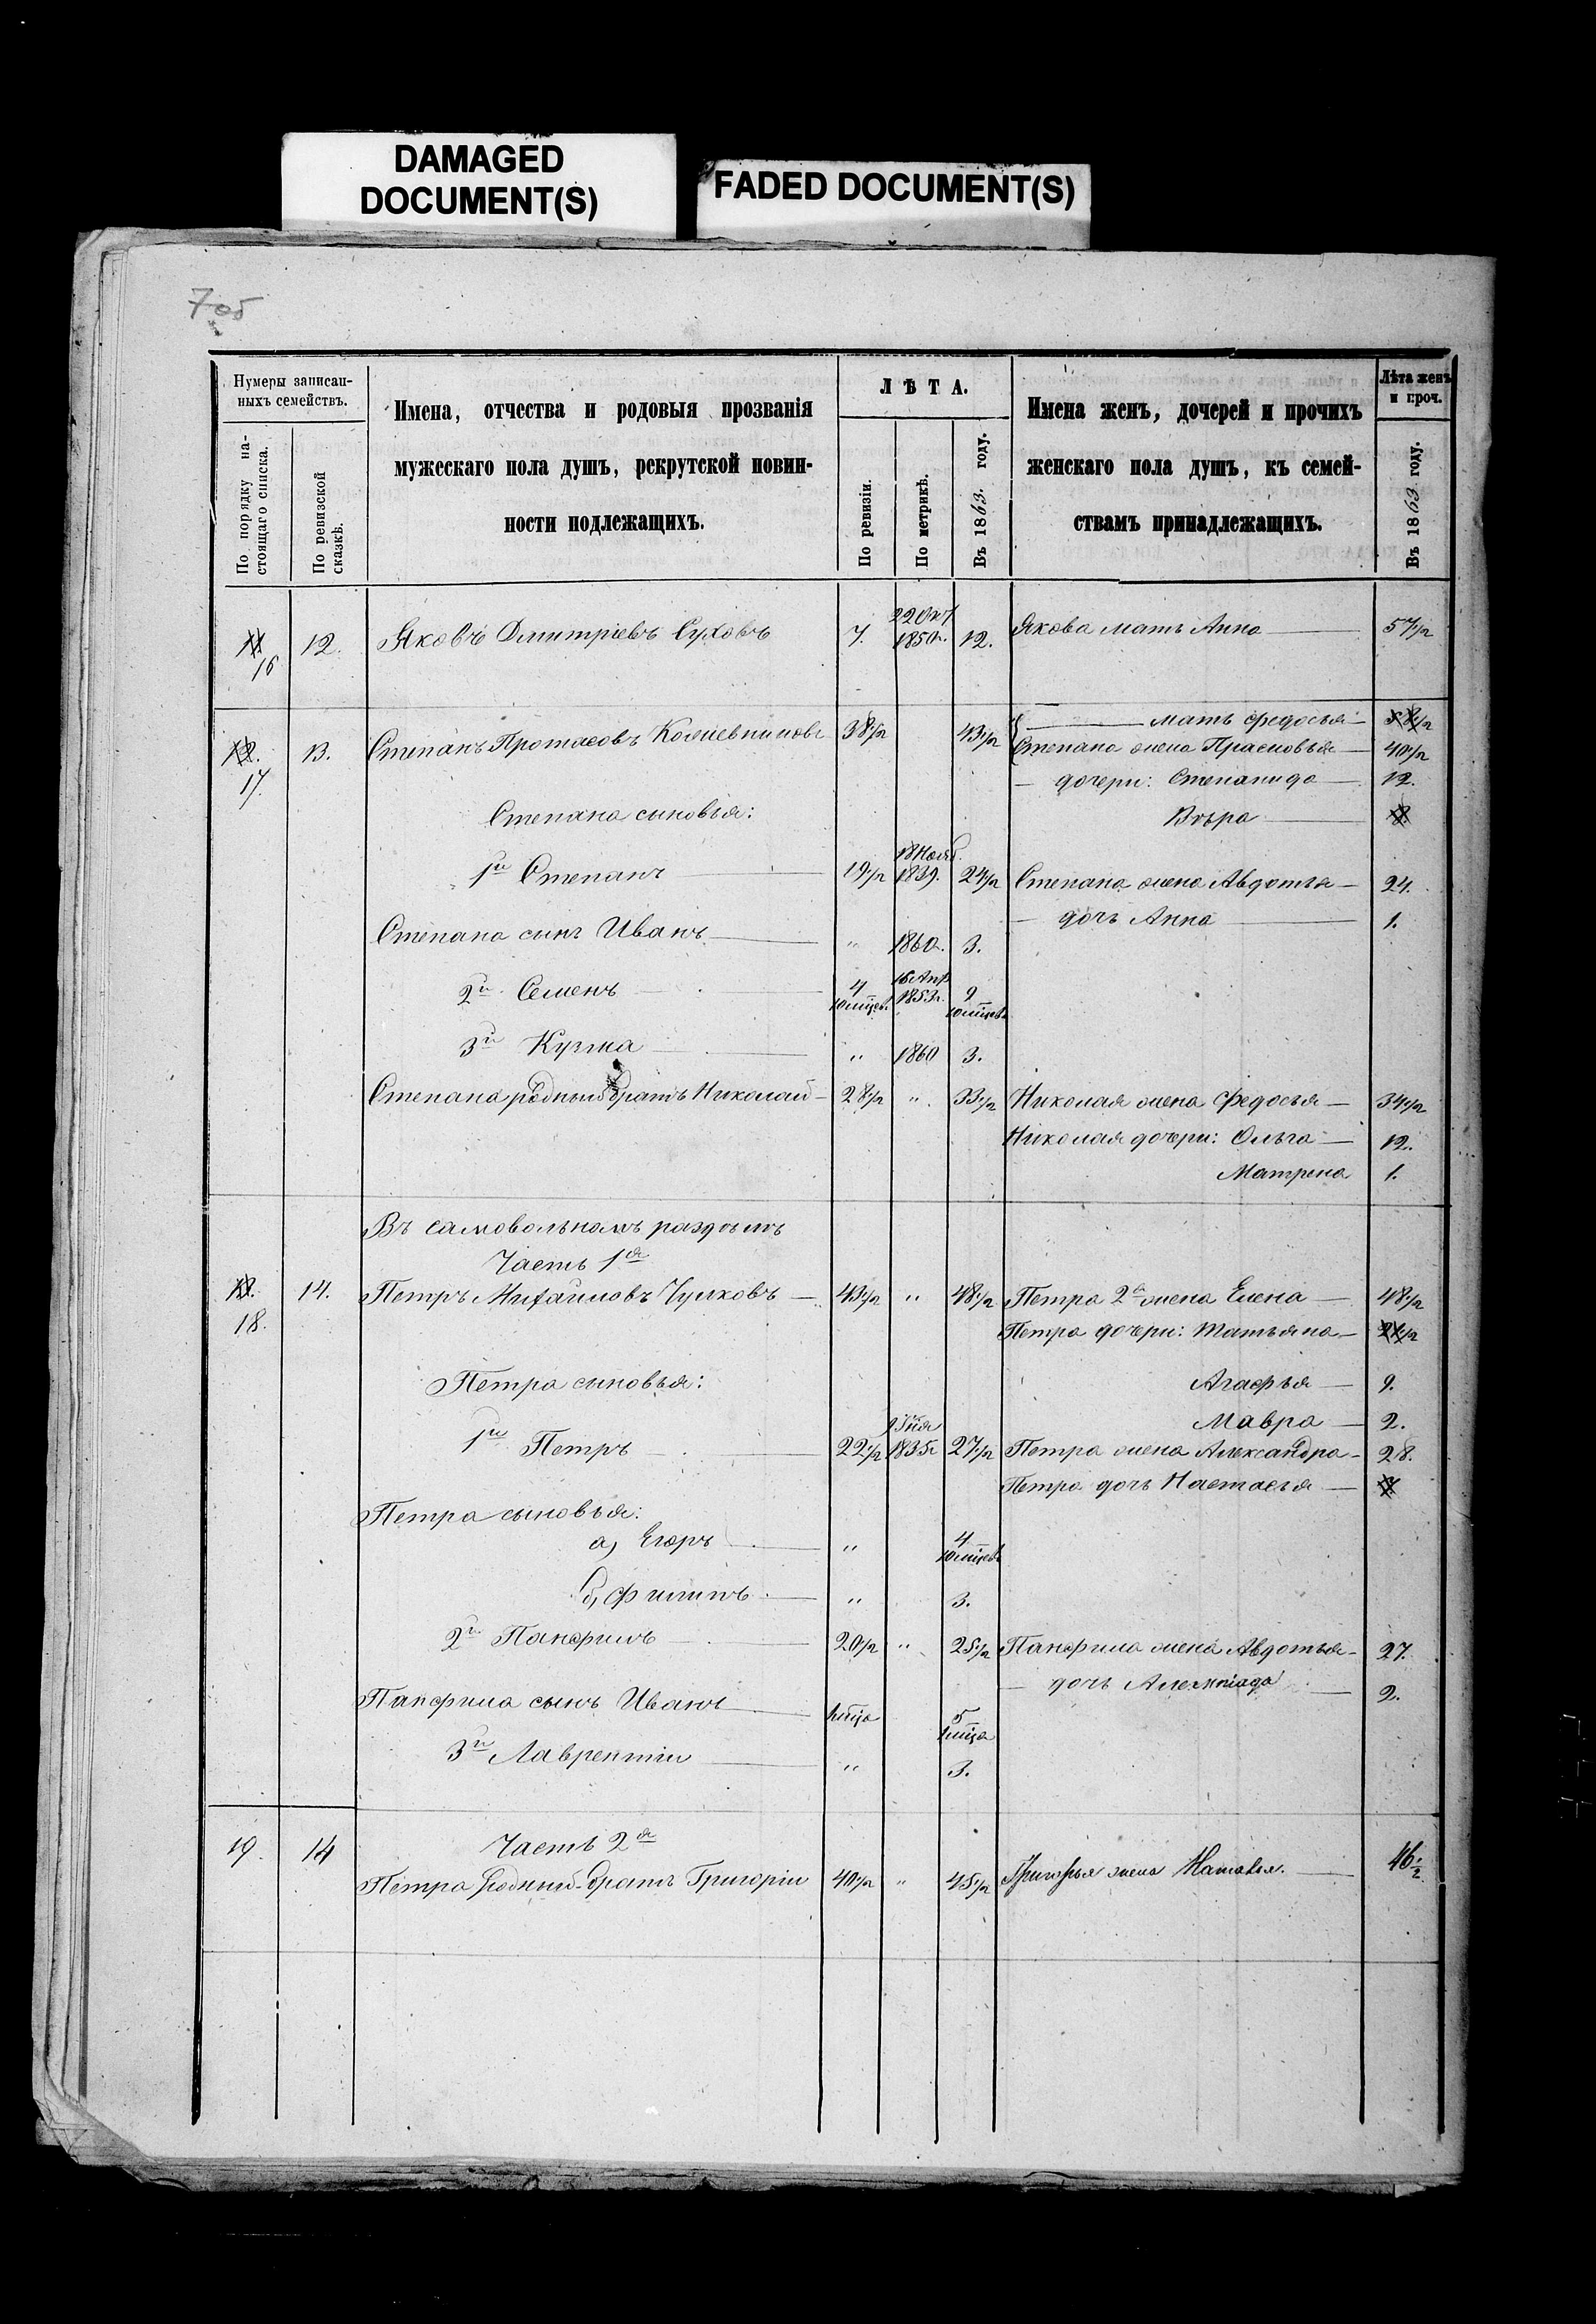 DAMAGED
DOCUMENT(S)
FADED DOCUMENT(S)
7об
Нумеры записан-
ныхъ семействъ.
По порядку на-
стоящаго списка.
По ревизской
сказкѣ.
Имена, отчества и родовыя прозванія
мужескаго пола душъ, рекрутской повин-
ности подлежащихъ.
ЛѢТА.
По ревизіи.
По метрикѣ.
Въ 1863. году.
Имена женъ, дочерей и прочихъ
женскаго пола душъ, къ семей-
ствамъ принадлежащихъ.
Лѣта женъ
и проч.
Въ 1863 году.
11. 16 12. Яковъ Дмитріевъ Суховъ 7. 22 Окт 1850г. 12. Якова мать Анна 57 1/2
мать Федосья 58 1/2
12. 17. 13. Степанъ Протасовъ 38 1/2 43 1/2 Степана жена Прасковья 40 1/2
дочери: Степанида 12.
Степана сыновья: Вѣра 8.
1й Степанъ 19 1/2 18 Нояб. 1839. 24 1/2 Степана жена Авдотья 24.
дочь Анна 1.
Степана сынъ Иванъ " 1860. 3.
2й Семенъ 4 10 мцев. 16 Апр 1853г. 9 10 мцевъ
3й Кузма " 1860 3.
Степана родный братъ Николай 28 1/2 " 33 1/2 Николая жена Федосья 34 1/2
Николая дочери: Ольга 12.
Матрена 1.
Въ самовольномъ раздѣлѣ
Часть 1я
13. 18. 14. Петръ Михайловъ Чулковъ 43 1/2 " 48 1/2 Петра 2я жена Елена 48 1/2
Петра дочери: Татьяна 21 1/2
Петра сыновья: Агафья 9.
Мавра 2.
1й Петръ 22 1/2 1835г 27 1/2 Петра жена Александра 28.
Петра дочь Настасья 7
Петра сыновья:
а, Егоръ " 4 10 мцевъ
б, Филипъ " 3.
2й Панфилъ 20 1/2 " 25 1/2 Панфила жена Авдотья 27.
дочь 2.
Панфила сынъ Иванъ 1 мца 5 1 мца
3й Лаврентіи " 3.
19. 14 Часть 2я
Петра родный братъ Григоріи 40 1/2 " 45 1/2 Григорья жена Наталья. 46 1/2